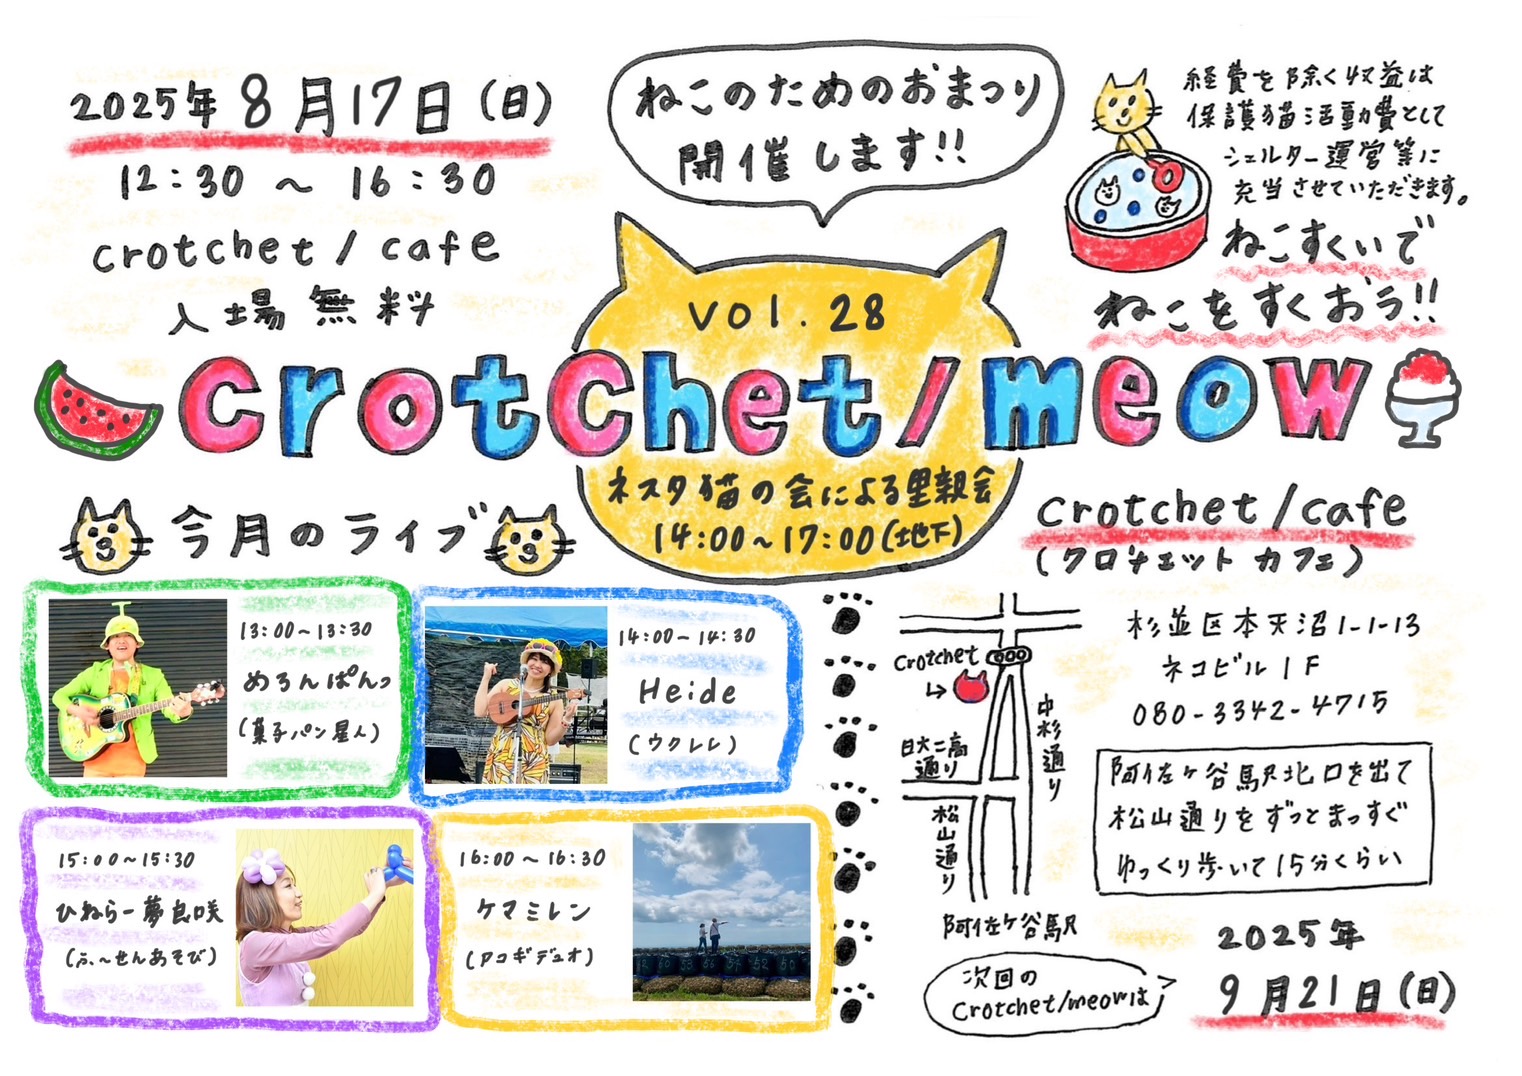 2025年8月17日(日)
12:30 ～ 16:30
crotchet / cafe
入場無料
ねこのためのおまつり
開催します!!
経費を除く収益は
保護猫活動費として
シェルター運営等に
充当させていただきます。
ねこすくいで
ねこをすくおう!!
vol. 28
crotchet/meow
ネスタ猫の会による里親会
14:00～17:00(地下)
今月のライブ
13:00～13:30
めろんぱんっ
(菓子パン星人)
14:00～14:30
Heide
(ウクレレ)
15:00～15:30
ひねらー夢良咲
(ふ〜せんあそび)
16:00～16:30
ケマミレン
(アコギデュオ)
crotchet/cafe
(クロチェット カフェ)
crotchet
中杉通り
日大二高
通り
松山通り
阿佐ケ谷駅
杉並区本天沼1-1-13
ネコビル1F
080-3342-4715
阿佐ヶ谷駅北口を出て
松山通りをずっとまっすぐ
ゆっくり歩いて15分くらい
次回の
Crotchet/meowは
2025年
9月21日(日)